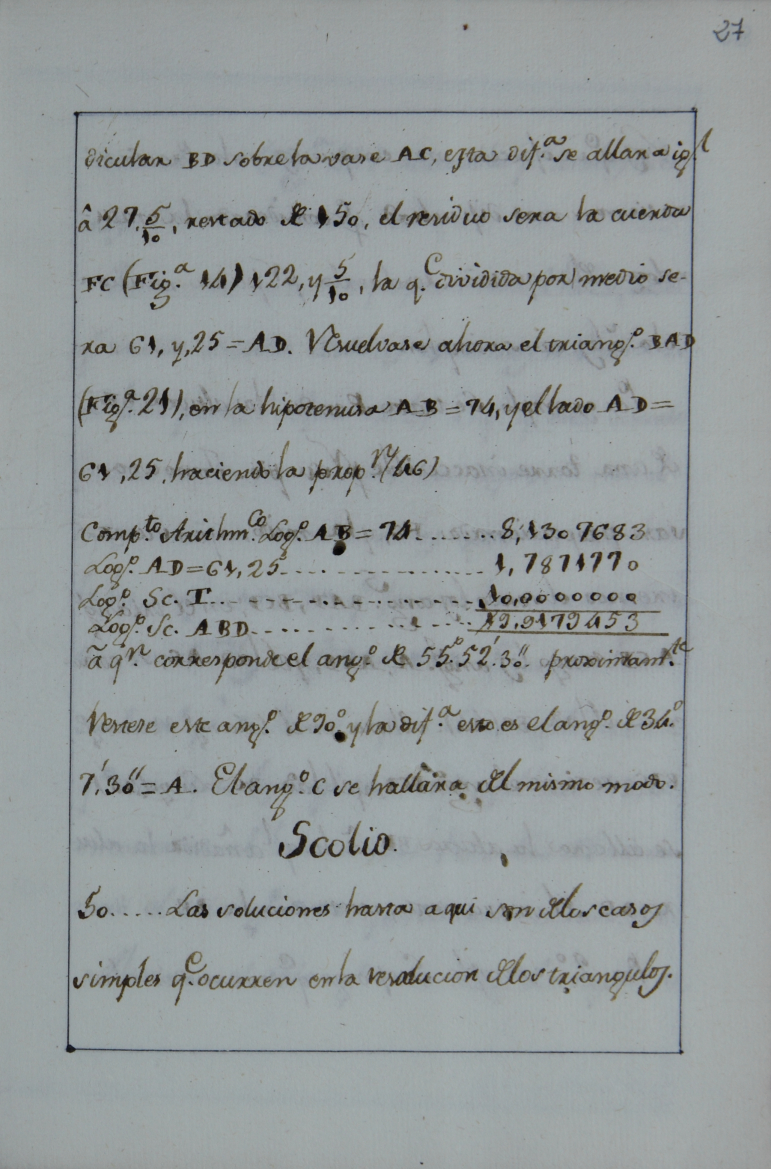 27
dicular BD sobre la vase AC, esta dif.ª se allara ig.l
â 27, 5/10, restado de 150, el residuo sera la cuerda
FC (Fig.ª 14) 122, y 5/10, la q.e dividida por medio se-
ra 61, y, 25 = AD. Resuelvase ahora el triang.º BAD
(Fig.ª 21), en la hipotenusa AB = 74, y el lado AD =
61,25, haciendo la prop.n (46)
Comp.to Arithm.co Log.º AB = 74 ...... 8,1307683
Log.º AD = 61,25 ................ 1,7871770
Log.º Sc. T. ................ 10,0000000
Log.º Sc. ABD ................ 19,9179453
ã q.n corresponde el ang.º de 55.º 52.' 30.'' proximam.te
Restese este ang.º de 90.º y la dif.ª esto es el ang.º de 34.º
7.' 30'' = A. El ang.º C se hallàra del mismo modo.
Scolio.
50..... Las soluciones hasta aqui son de los casos
simples q.e ocurren en la resolucion de los triangulos.